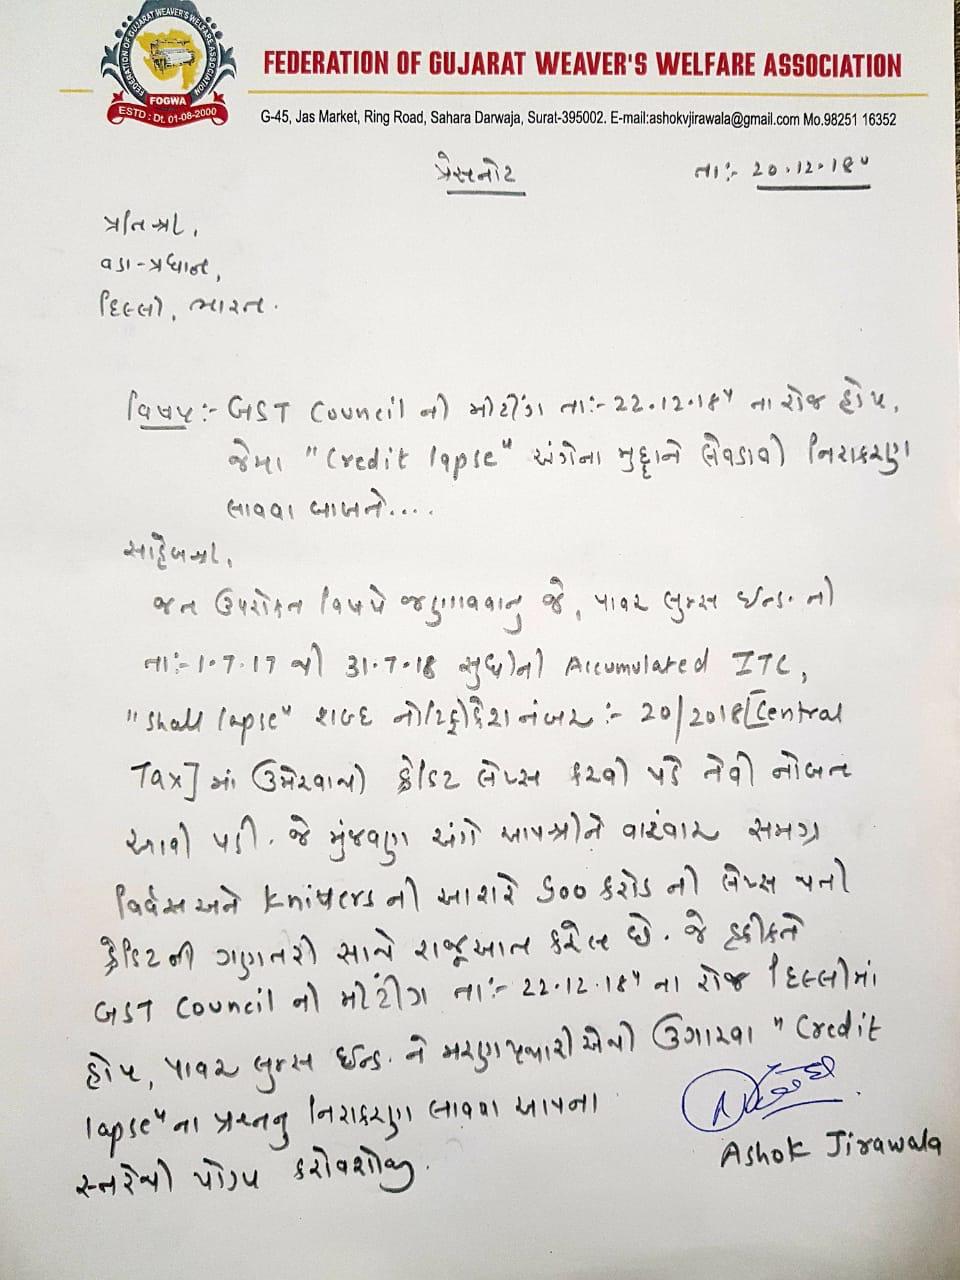 FEDERATION OF GUJARAT WEAVER'S WELFARE ASSOCIATION
FOGWA
ESTD : Dt. 01-08-2000
FEDERATION OF GUJARAT WEAVER'S WELFARE ASSOCIATION
G-45, Jas Market, Ring Road, Sahara Darwaja, Surat-395002. E-mail:ashokvjirawala@gmail.com Mo.98251 16352
પ્રેસનોટ તાઃ- 20.12.18
પ્રતિશ્રી,
વડા-પ્રધાન,
દિલ્લી, ભારત.
વિષયઃ- GST Council ની મીટીંગ તાઃ- 22.12.18 ના રોજ હોય,
જેમા "Credit lapse" અંગેના મુદ્દાને લેવડાવી નિરાકરણ
લાવવા બાબતે....
સાહેબશ્રી,
જત ઉપરોક્ત વિષયે જણાવવાનુ જે, પાવર લુમ્સ ઈન્ડ. ની
તાઃ- 1.7.17 થી 31.7.18 સુધીની Accumulated ITC,
"Shall lapse" શબ્દ નોટિફીકેશ નંબર :- 20/2018[Central
Tax] માં ઉમેરવાથી ક્રેડિટ લેપ્સ કરવી પડે તેવી નોબત
આવી પડી. જે મુંજવણ અંગે આપશ્રીને વારંવાર સમગ્ર
વિવર્સ અને Knitters ની આશરે 600 કરોડ ની લેપ્સ થતી
ક્રેડિટ ની ગણતરી સાથે રાજૂઆત કરેલ છે. જે હકીકતે
GST Council ની મીટીંગ તાઃ- 22.12.18 ના રોજ દિલ્લીમાં
હોય, પાવર લુમ્સ ઈન્ડ. ને મરણપથારીએથી ઉગારવા "Credit
lapse" ના પ્રશ્નનુ નિરાકરણ લાવવા આપના
સ્તરેથી યોગ્ય કરાવશોજી.
Ashok Jirawala